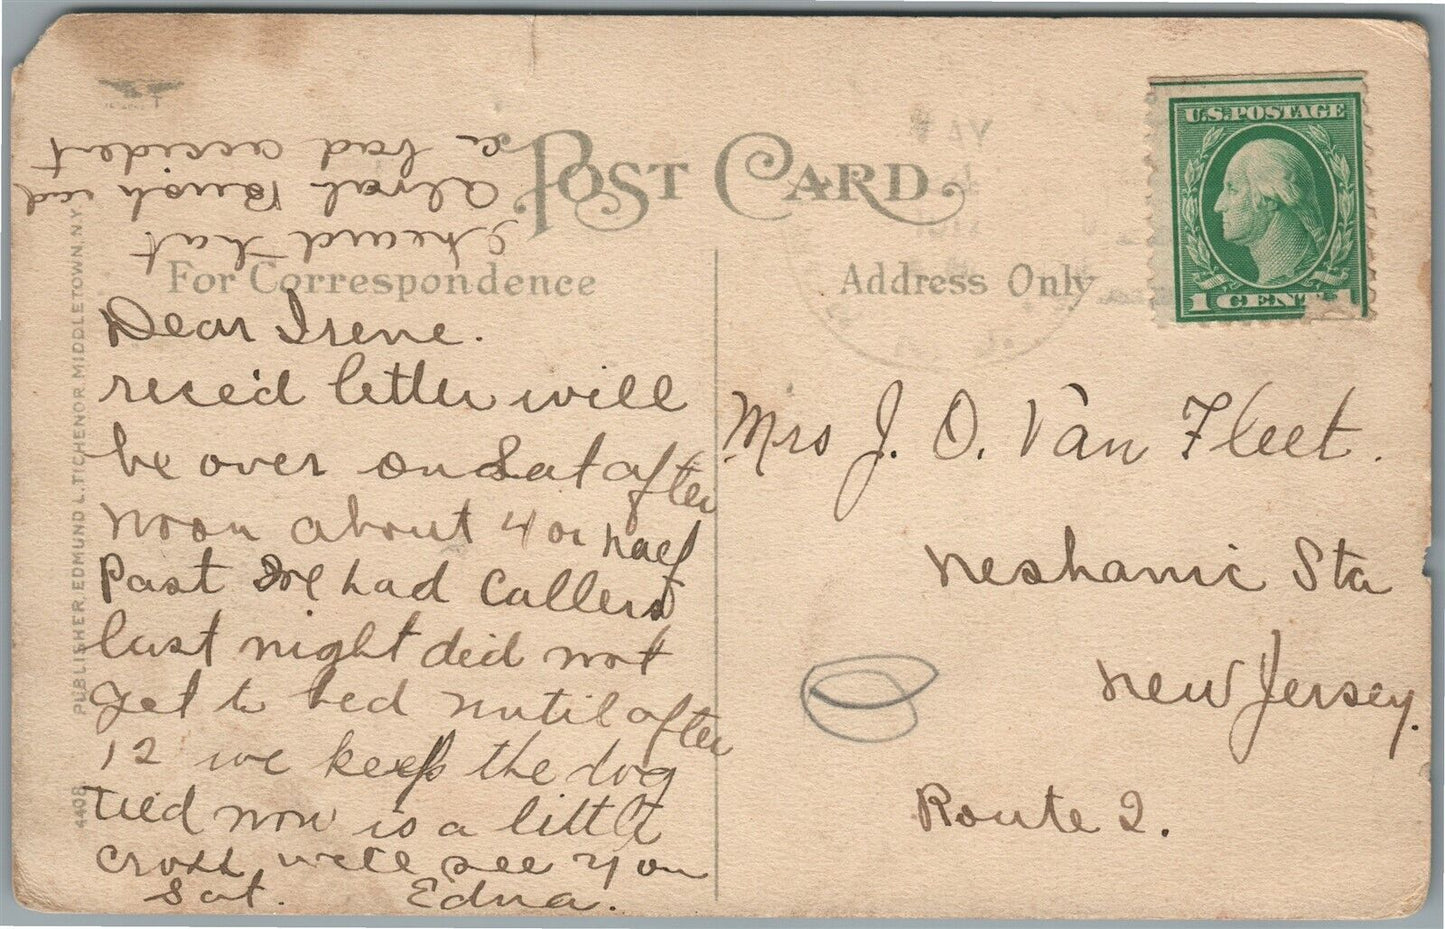 POST CARD
For Correspondence
Address Only
U.S. POSTAGE
1 CENT 1
Dear Irene.
rece'd letter will
be over on Sat after
noon about 4 or half
Past We had Callers
last night did not
get to bed until after
12 we keep the dog
tied now is a little
cross well see you
Sat. Edna.
I heard that
Alvah Bush had
a bad accident
Mrs J. O. Van Fleet.
Neshanic Sta
New Jersey.
Route 2.
4408 PUBLISHER, EDMUND L. TICHENOR MIDDLETOWN. N.Y.